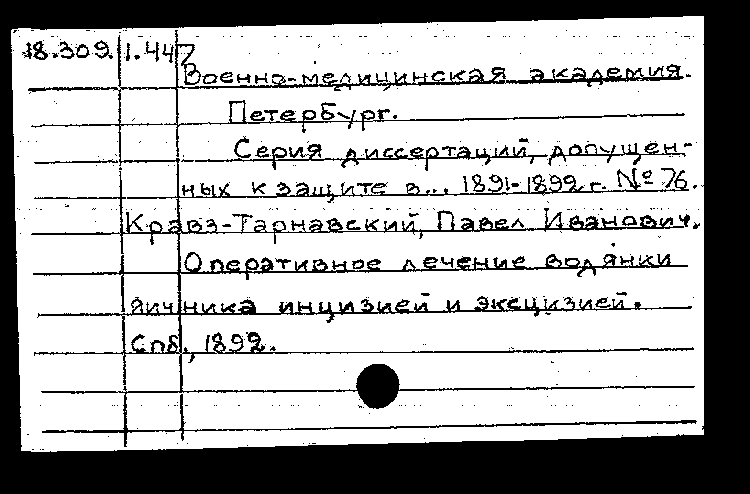 18.309. 1.447
Военно-медицинская академия.
Петербург.
Серия диссертаций, допущен-
ных к защите в... 1891-1892 г. № 76.
Кравз-Тарнавский, Павел Иванович.
Оперативное лечение водянки
яичника инцизией и эксцизией.
Спб., 1892.